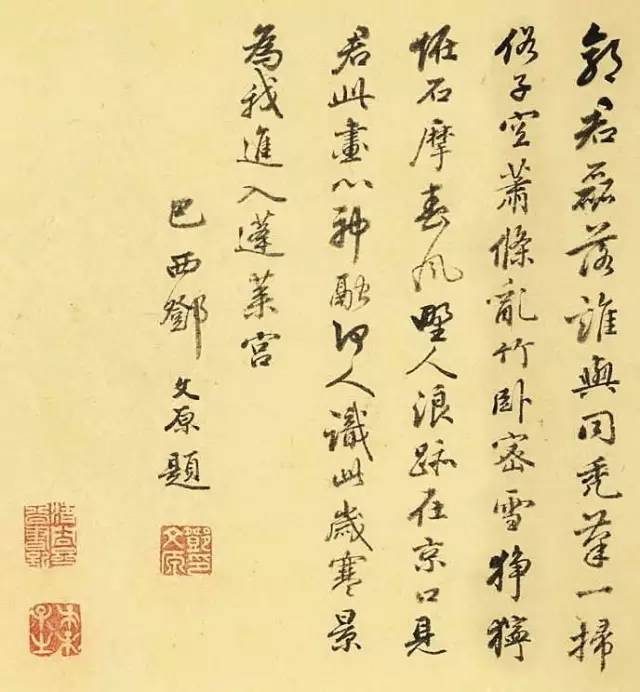 郭君磊落誰與同禿筆一掃
俗子空蕭條亂竹卧密雪狰獰
恠石摩春風野人浪跡在京口見
君此畫心神融何人識此歲寒景
為我進入蓬萊宮
巴西鄧文原題